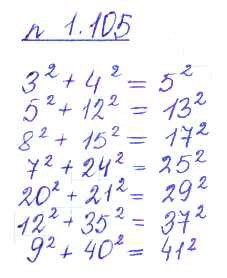 n 1.105
3² + 4² = 5²
5² + 12² = 13²
8² + 15² = 17²
7² + 24² = 25²
20² + 21² = 29²
12² + 35² = 37²
9² + 40² = 41²